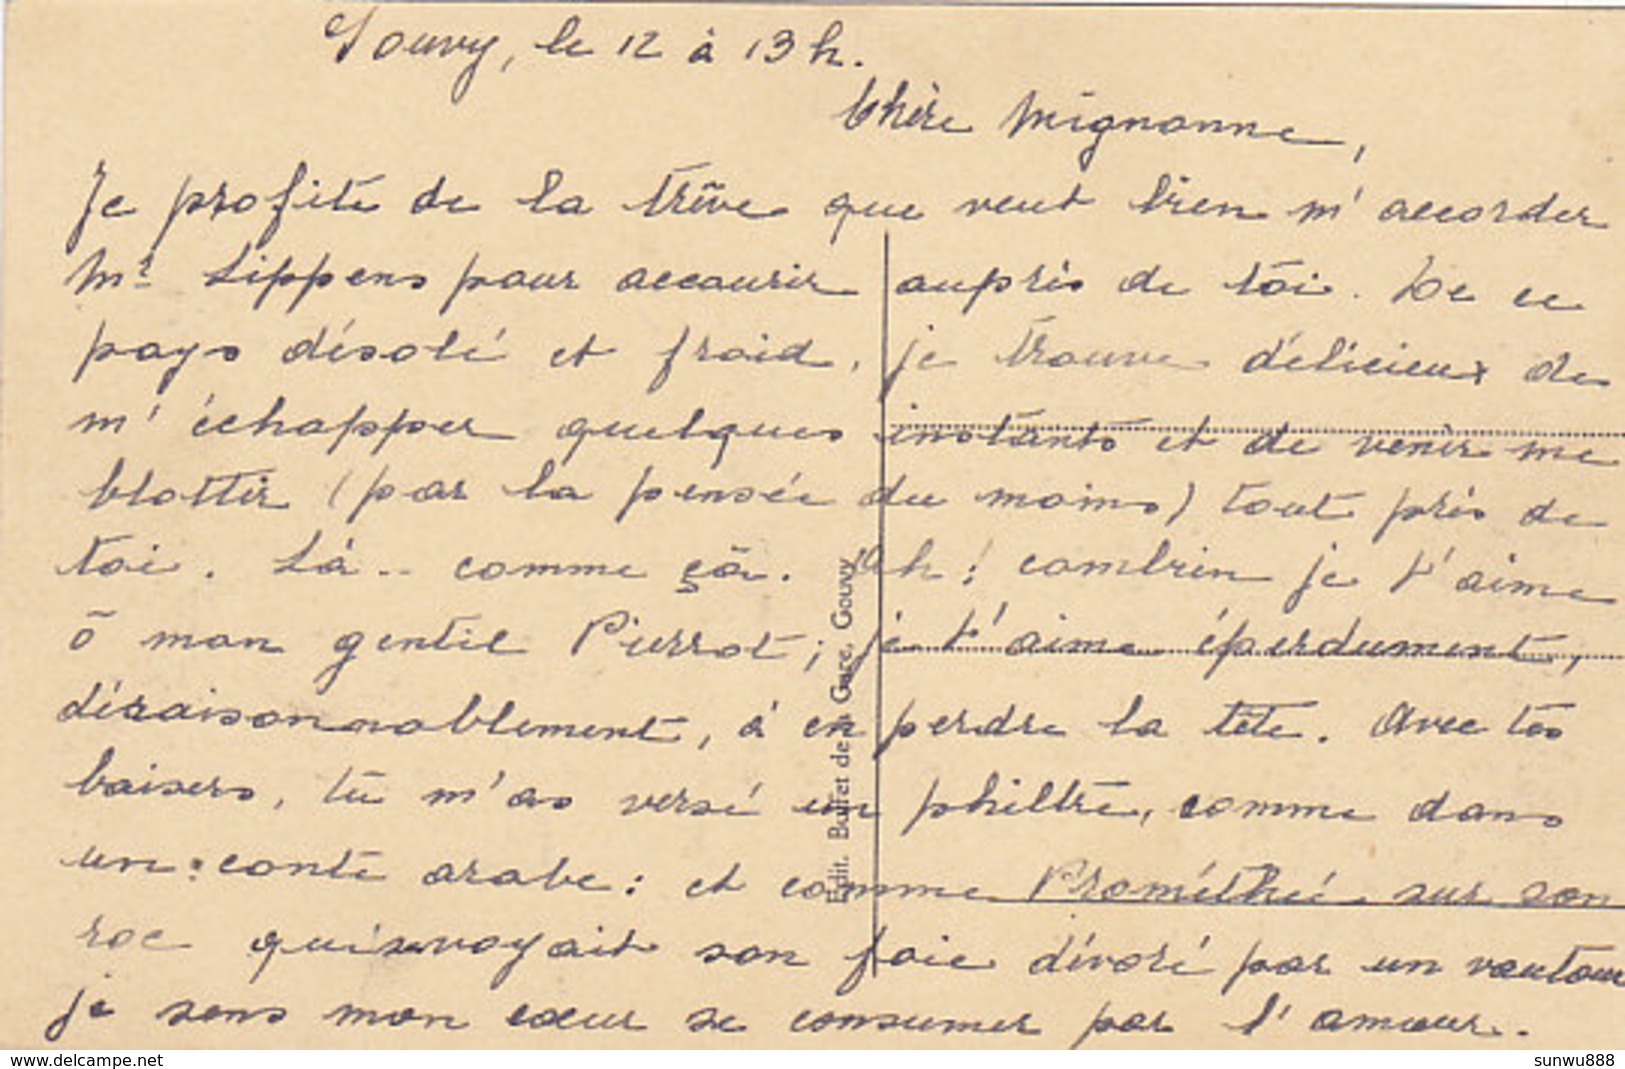 Gouvy, le 12 à 13 h.
Chère Mignonne,
Je profite de la trêve que veut bien m'accorder
Mr Lippens pour accourir auprès de toi. De ce
pays désolé et froid, je trouve délicieux de
m'échapper quelques instants et de venir me
blottir (par la pensée du moins) tout près de
toi. Là .. comme çà. Ah! combien je t'aime
ô mon gentil Pierrot; je t'aime éperdument,
déraisonnablement, à en perdre la tête. Avec tes
baisers, tu m'as versé un philtre, comme dans
un conte arabe: et comme Prométhée sur son
roc qui voyait son foie dévoré par un vautour
je sens mon cœur se consumer par l'amour.
Edit. Buffet de la Gare, Gouvy
delcampe.net
sunwu888